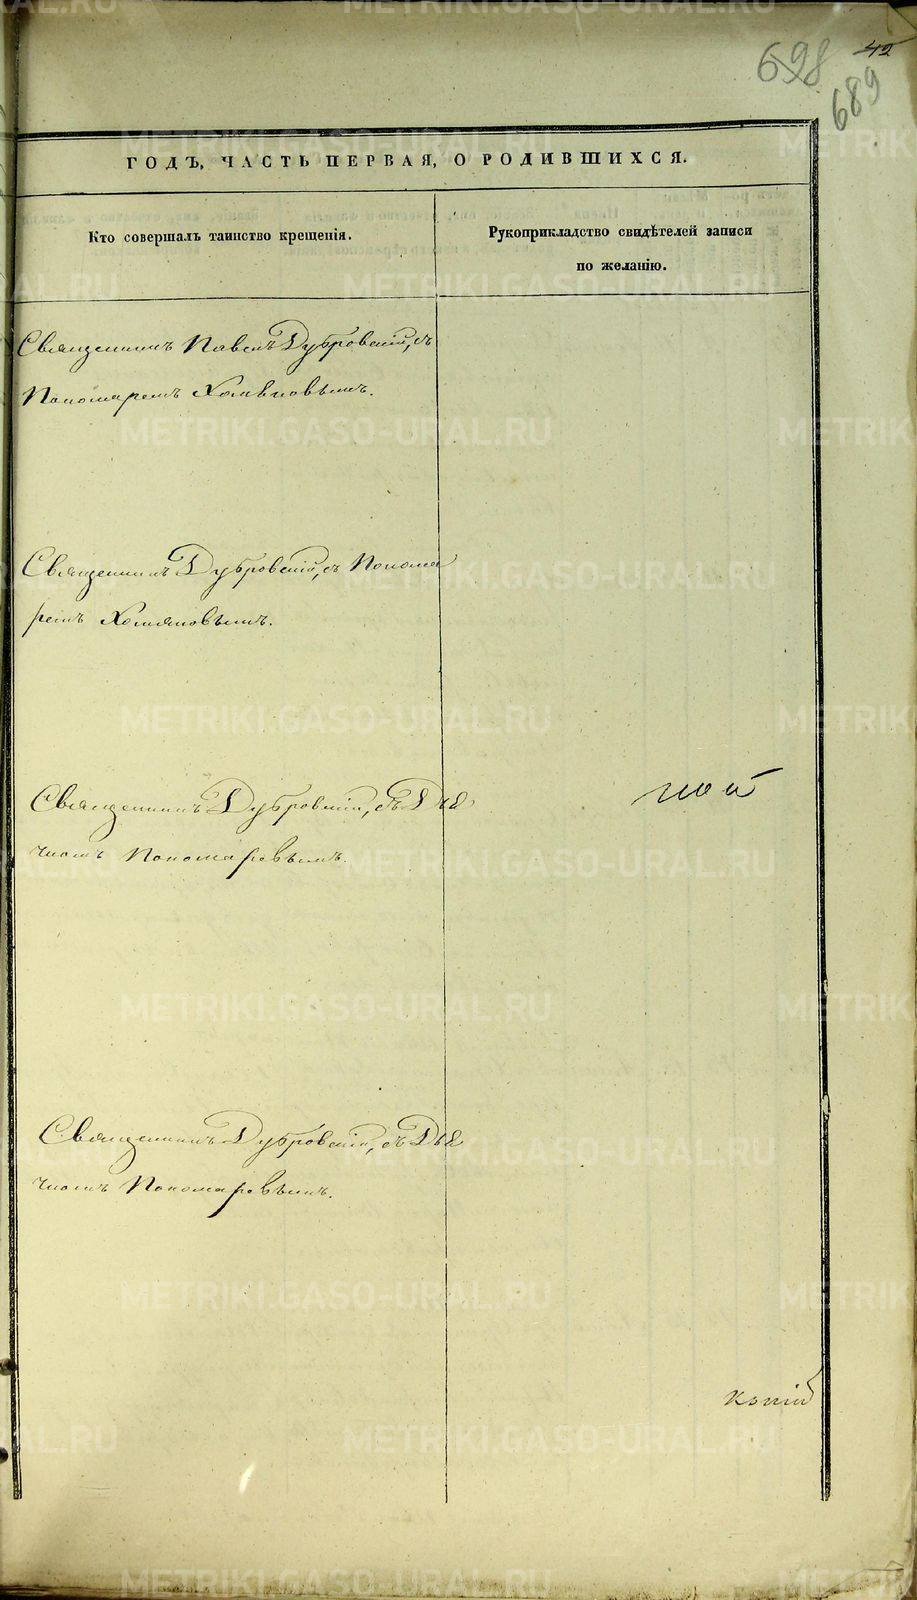 698 42
689
ГОДЪ, ЧАСТЬ ПЕРВАЯ, О РОДИВШИХСЯ.
Кто совершалъ таинство крещенія.
Рукоприкладство свидѣтелей записи
по желанію.
Священникъ Павелъ Дубровскій, съ
Пономаремъ Хомяковымъ.
Священникъ Дубровскій, съ Понома
ремъ Хомяковымъ.
Священникъ Дубровскій, съ Дья
чкомъ Пономаревымъ.
ной
Священникъ Дубровскій, съ Дья
чкомъ Пономаревымъ.
METRIKI.GASO-URAL.RU